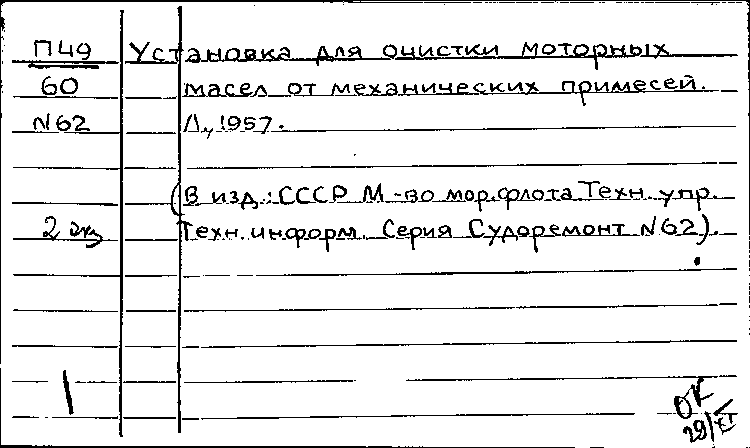 П49 Установка для очистки моторных
60 масел от механических примесей.
N62 Л., 1957.
(В изд.: СССР М-во мор.флота. Техн. упр.
2 экз Техн. информ. Серия Судоремонт N62).
1
ОК
29/XI